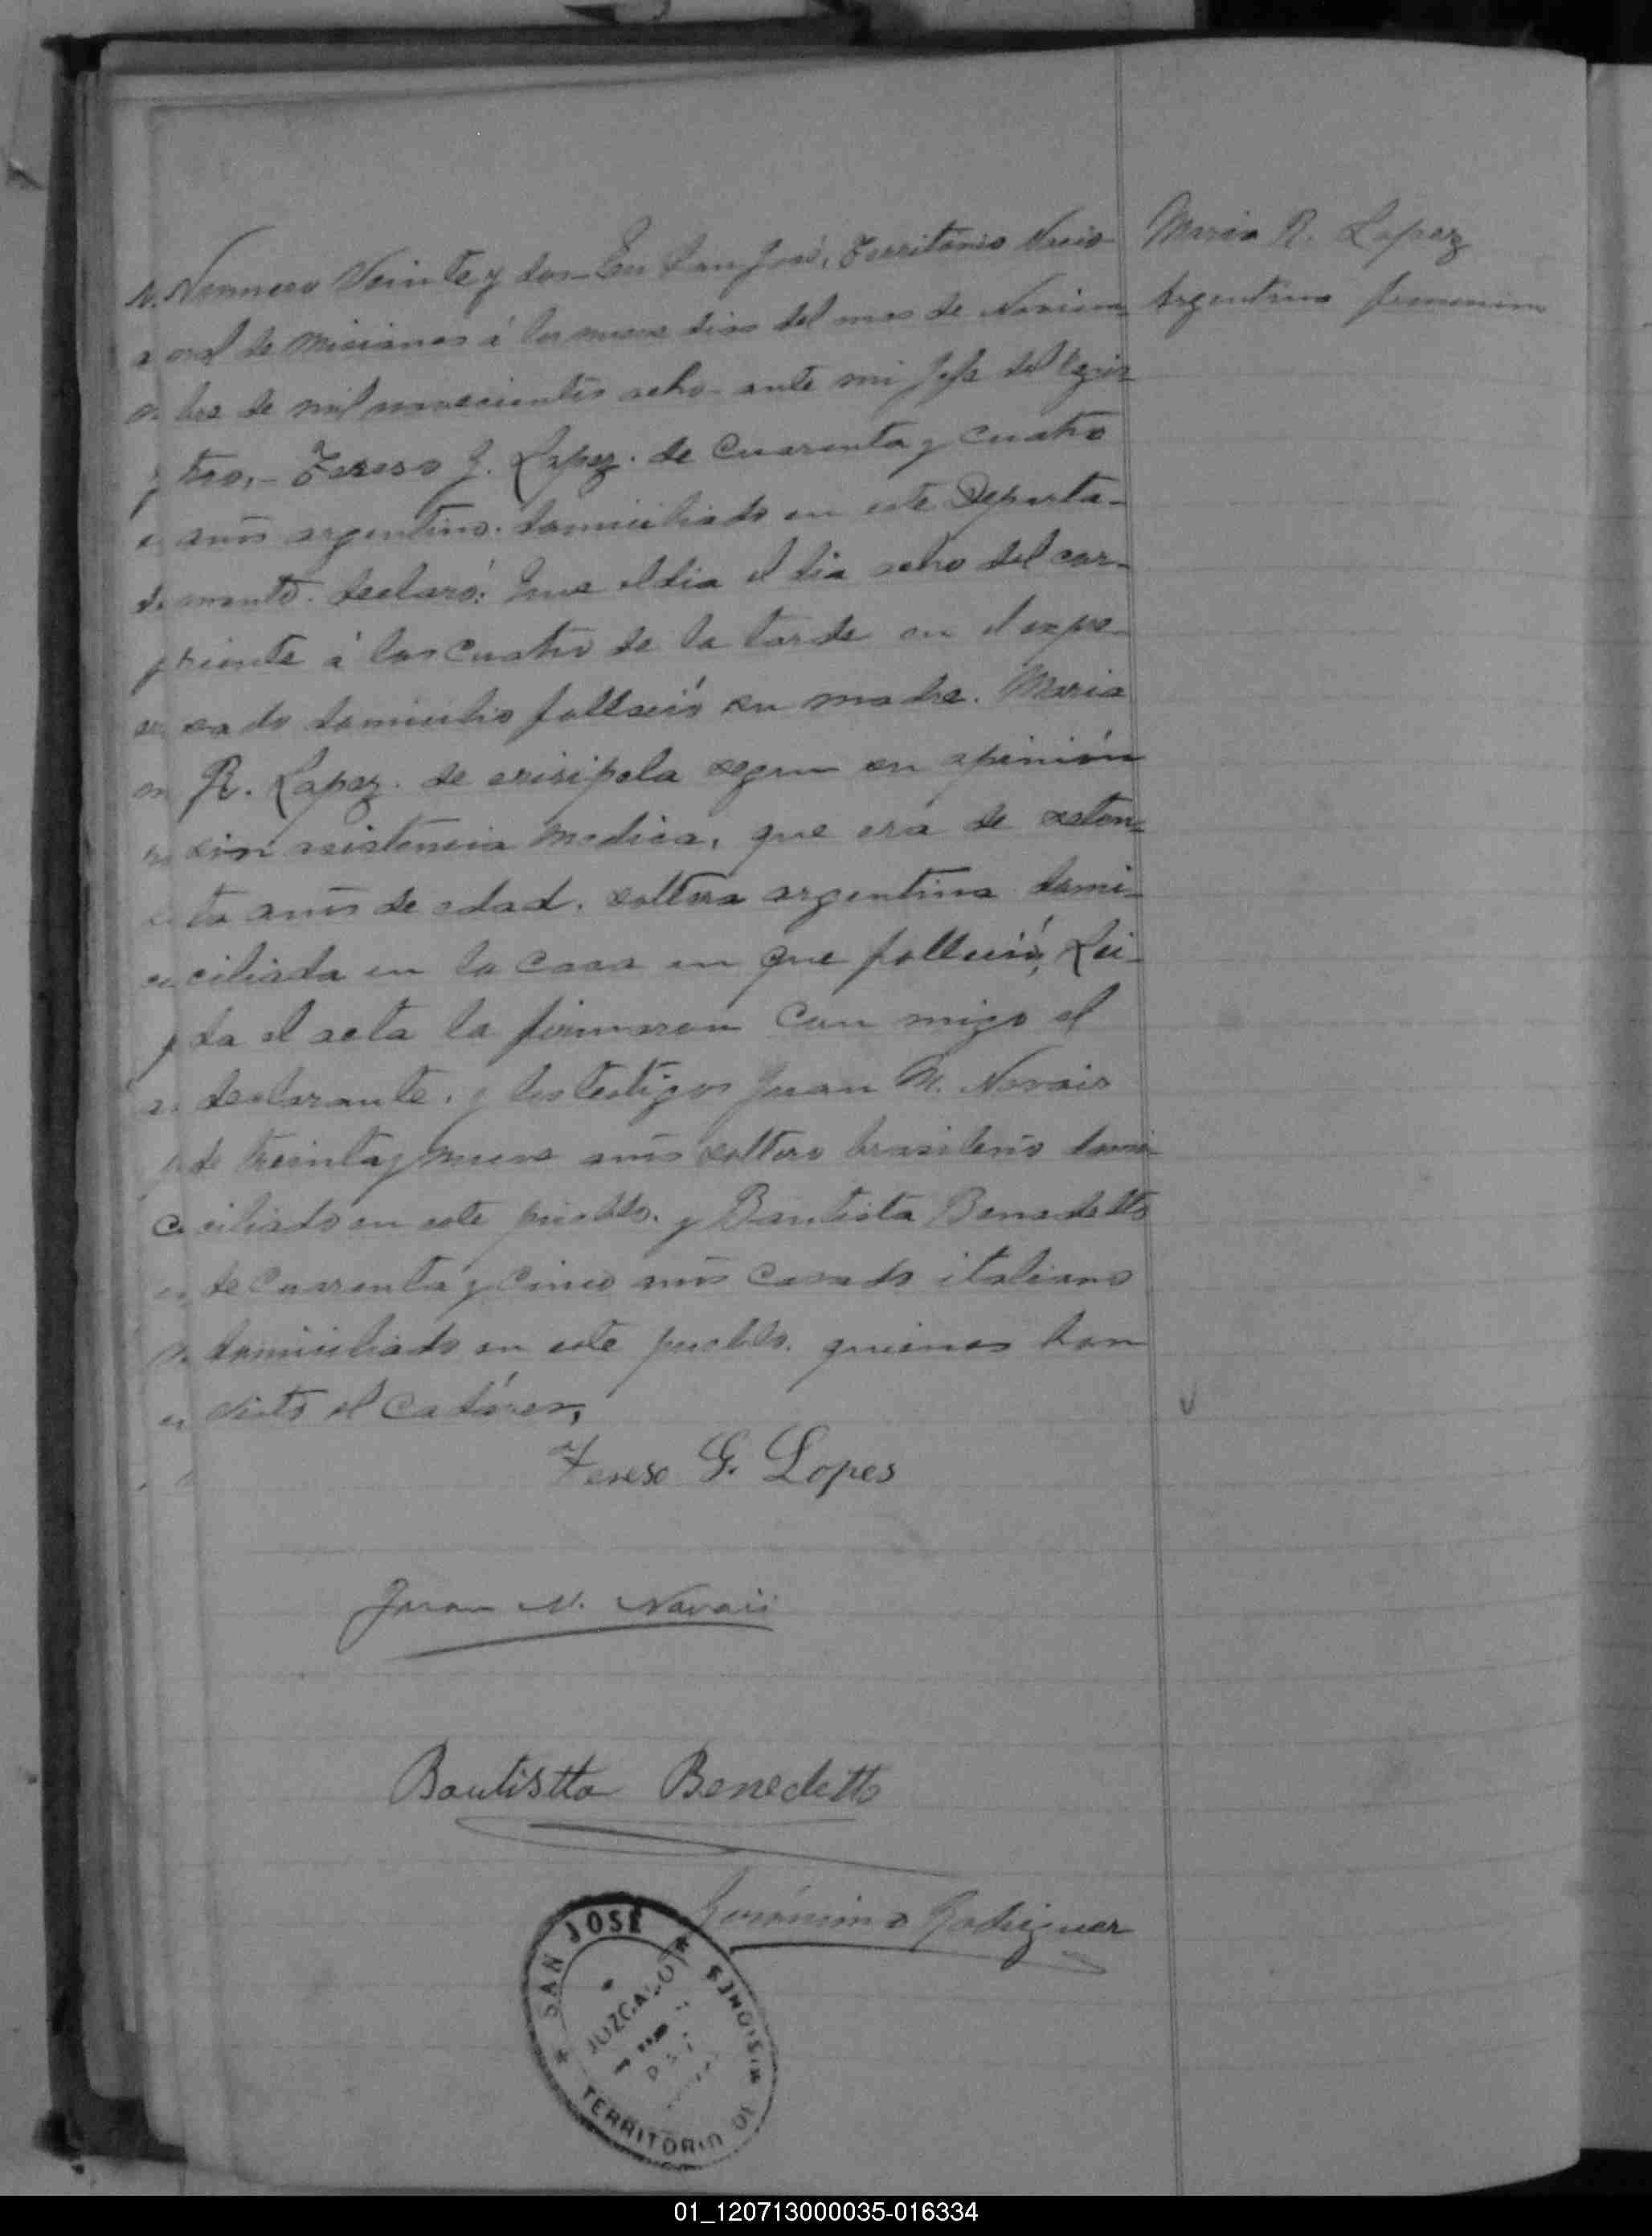 Nummero Veinte y dos En San José, Territorio Nacio-
nal de Misiones á los nueve dias del mes de Noviem-
bre de mil novecientos ocho ante mi Jefe del Regis-
tro,- Tereso G. Lopez. de Cuarenta y Cuatro
años argentino. domiciliado en este Departa-
mento. declaró: Que el dia el dia ocho del cor-
riente á las cuatro de la tarde en el expre-
sado domicilio falleció su madre. Maria
R. Lopez. de erisipela segun su opinión
sin asistencia medica, que era de
ta años de edad. soltera argentina domi-
ciliada en la casa en que falleció, Lei-
da el acta la firmaron con migo el
declarante. y los testigos Juan N. Navais
de treinta y nueve años soltero brasilero domi-
ciliado en este pueblo. y Bautista Benedetto
de Cuarenta y Cinco años casado italiano
domiciliado en este pueblo. quienes han
visto el cadáver,
Maria R. Lopez
Argentina femenino
Tereso G. Lopes
Juan N. Navais
Bautistta Benedetto
Gerónimo Rodriguez
* SAN JOSÉ * TERRITORIO DE MISIONES
JUZGADO
01_120713000035-016334